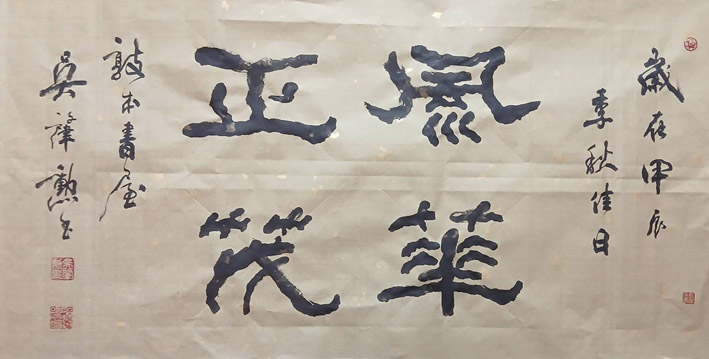 歲在甲辰
季秋佳日
風華
正茂
敦本書屋
吳譯勲書